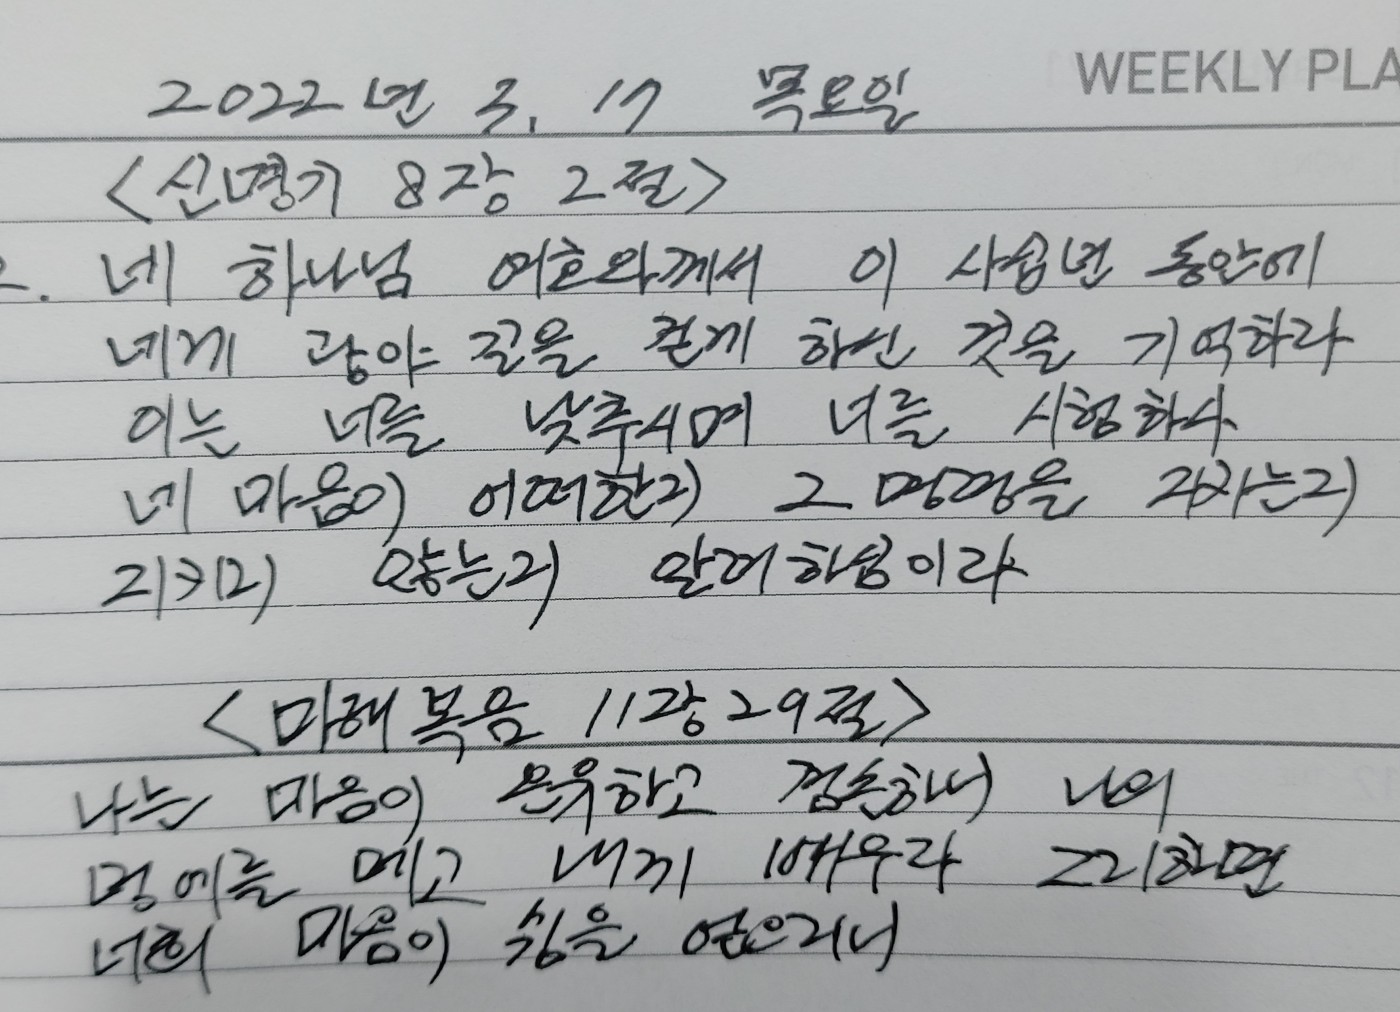 WEEKLY PLA
2022년 3. 17 목요일
<신명기 8장 2절>
2. 네 하나님 여호와께서 이 사십년 동안에
네게 광야 길을 걷게 하신 것을 기억하라
이는 너를 낮추시며 너를 시험하사
네 마음이 어떠한지 그 명령을 지키는지
지키지 않는지 알려 하심이라
<마태복음 11장 29절>
나는 마음이 온유하고 겸손하니 나의
멍에를 메고 내게 배우라 그리하면
너희 마음이 쉼을 얻으리니